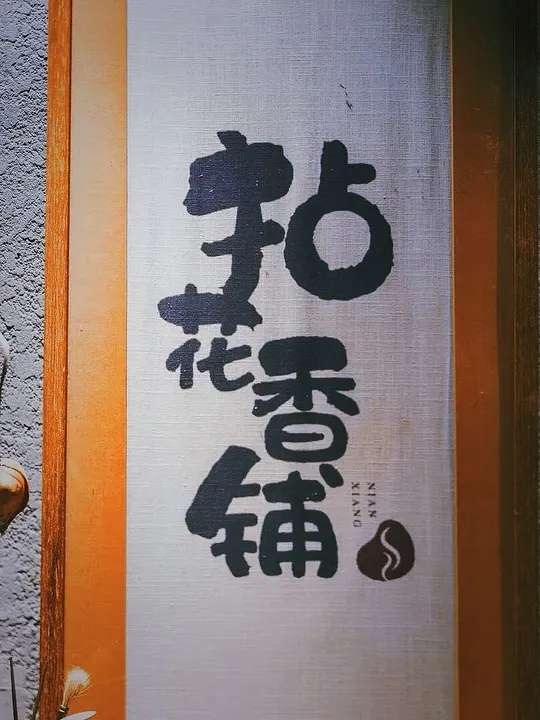 拈
花
香
铺
NIAN
XIANG